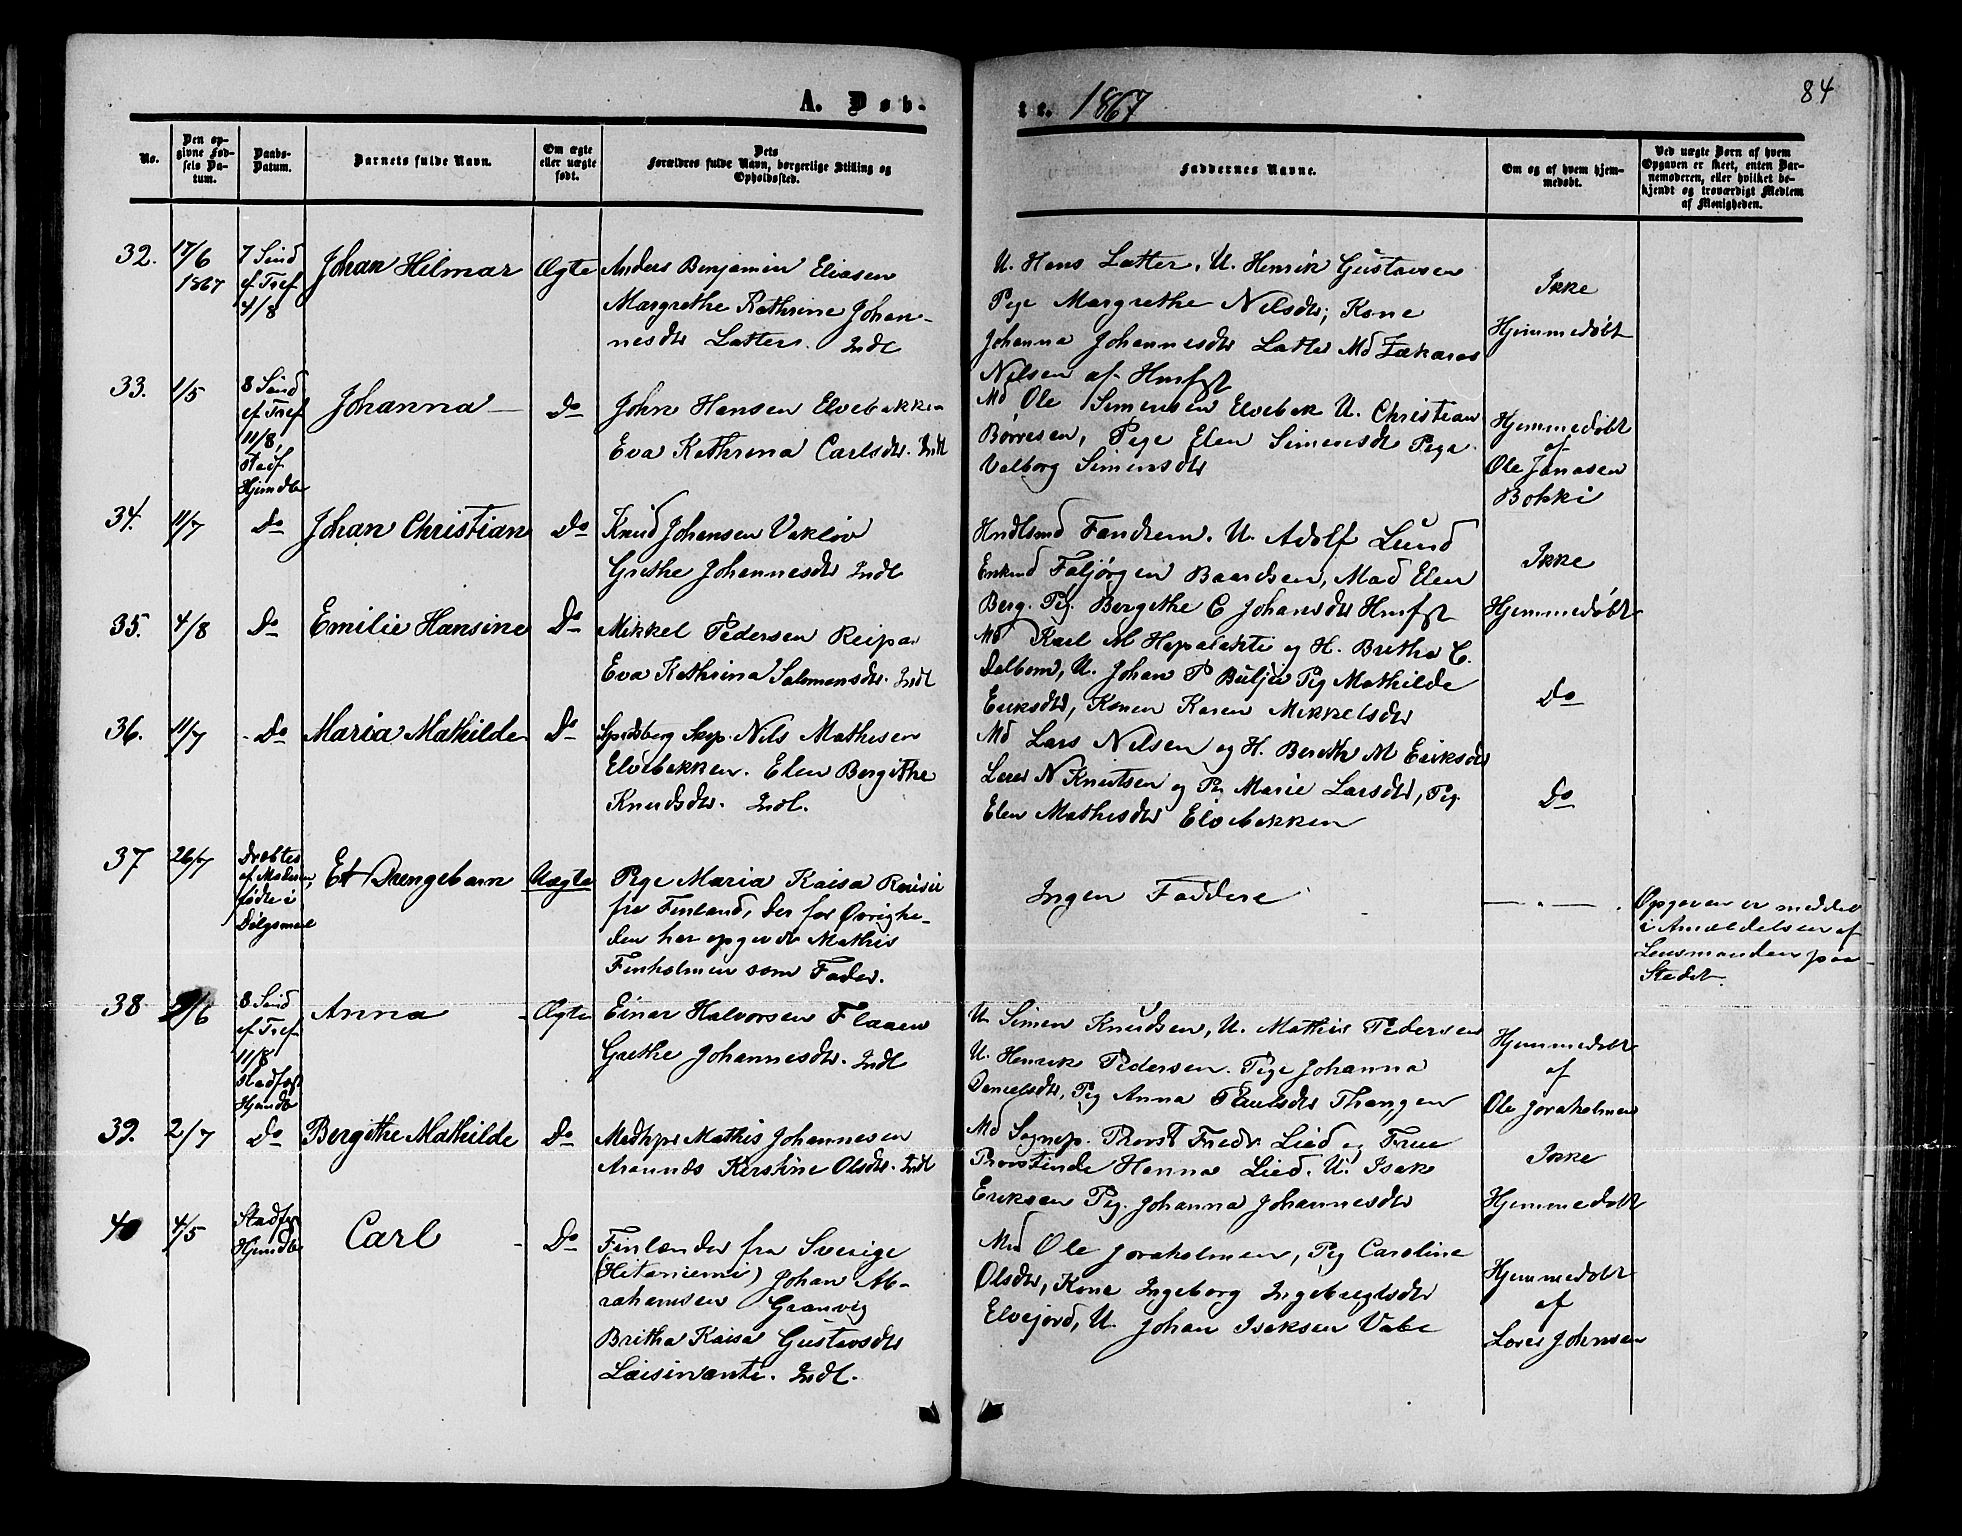 A. Døb-
te. 1867
84
No.
Den op-
givne Fød-
sels Da-
tum.
Daabs-
Datum.
Barnets fulde Navn.
Om ægte
eller uægte
født.
Dets
Forældres fulde Navn, borgerlige Stilling og
Opholdssted.
Faddernes Navne.
Om og af hvem hjem-
medøbt.
Ved uægte Børn af hvem
Opgaven er skeet, enten Bar-
nemoderen, eller hvilket be-
kjendt og troværdigt Medlem
af Menigheden.
32.
17/6
1867
7 Sind
ef Tref
4/8
Johan Hilmar
Ægte
Anders Benjamin Eliasen
Margrethe Kathrine Johan-
nesdtr Latter. Indl
U. Hans Latter, U. Henrik Gustavsen
Pige Margrethe Nilsdtr, Kone
Johanna Johannesdtr Latter Md Zakarias
Nilsen af Hmfst
Ikke
Hjemmedøbt
33.
1/5
8 Sind
ef Tref
11/8,
stadf
Hjemdb
Johanna
Do
John Hansen Elvebakken
Eva Kathrina Carlsdtr. Indl
Md Ole Simensen Elvebak U. Christian
Børresen, Pige Elen Simensdtr Pige
Valborg Simensdtr
Hjemmedøbt
af
Ole Jonasen
Bokki
34.
11/7
Do
Johan Christian
Do
Knud Johansen Vakløv
Grethe Johannesdtr Indl
Hndlsmd Fandrem. U. Adolf Lund
Enkmd Faljørgen Baardsen, Mad Elen
Berg. Pig. Bergithe C Johansdtr Hmfst
Ikke
Hjemmedøbt
35.
4/8
Do
Emilie Hansine
Do
Mikkel Pedersen Reipas
Eva Kathrina Salomonsdtr. Indl
Md Karl M Hapalahti og H. Britha C.
Dalbom, U. Johan P Buljo Pig Mathilde
Eriksdtr, Konen Karen Mikkelsdtr
Do
36.
11/7
Do
Maria Mathilde
Do
Spidsberg Skip. Nils Mathisen
Elvebakken. Elen Bergithe
Knudsdtr. Indl.
Md Lars Nilsen og H. Bereth M Eriksdtr
Lars N Knutsen og Pi. Marie Larsdtr, Pig.
Elen Mathisdtr Elvebakken
Do
37
26/7
Dræbtes
af Moderen,
fødte i
Dølgsmaal
Et Drengebarn
Uægte
Pige Maria Kaisa
fra Finland, der for Øvrighe-
den har opgivet Mathis
Finholmen som Fader.
Ingen Faddere
Opgaven er meddelt
i Anmeldelsen af
Lensmanden paa
Stedet.
38
/6
8 Sind
ef Tref
11/8
stadfæst
Hjemdb
Anna
Ægte
Einar Halvorsen Flaaen
Grethe Johannesdtr. Indl
U. Simon Knudsen, U. Mathis Pedersen
U. Henrik Pedersen. Pige Johanna
Danielsdtr, Pig Anna Paulsdtr Thangen
Hjemmedøbt
af
Ole Joraholmen
39.
2/7
Do
Bergithe Mathilde
Do
Medhjpr Mathis Johannesen
Aronnæs Kerstine Olsdtr. Indl
Md Sognep. Provst Fredr Lied og Frue
Provstinde Hanna Lied. U. Isak
Eriksen Pig. Johanna Johannesdtr
Ikke
Hjemmedøbt
40
4/5
Stadfæst
Hjemdb
Carl
Do
Finlænder fra Sverige
(Hitaniemi) Johan Ab-
rahamsen Granvig
Britha Kaisa Gustavsdtr
Laisinanti. Indl.
Md Ole Joraholmen, Pig Caroline
Olsdtr, Kone Ingeborg Ingebregtsdtr
Elvejord, U. Johan Isaksen Vabe
Hjemmedøbt
af
Lars Johnsen